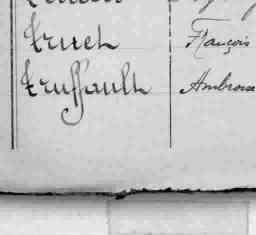 Truch François
Truffault Ambroise